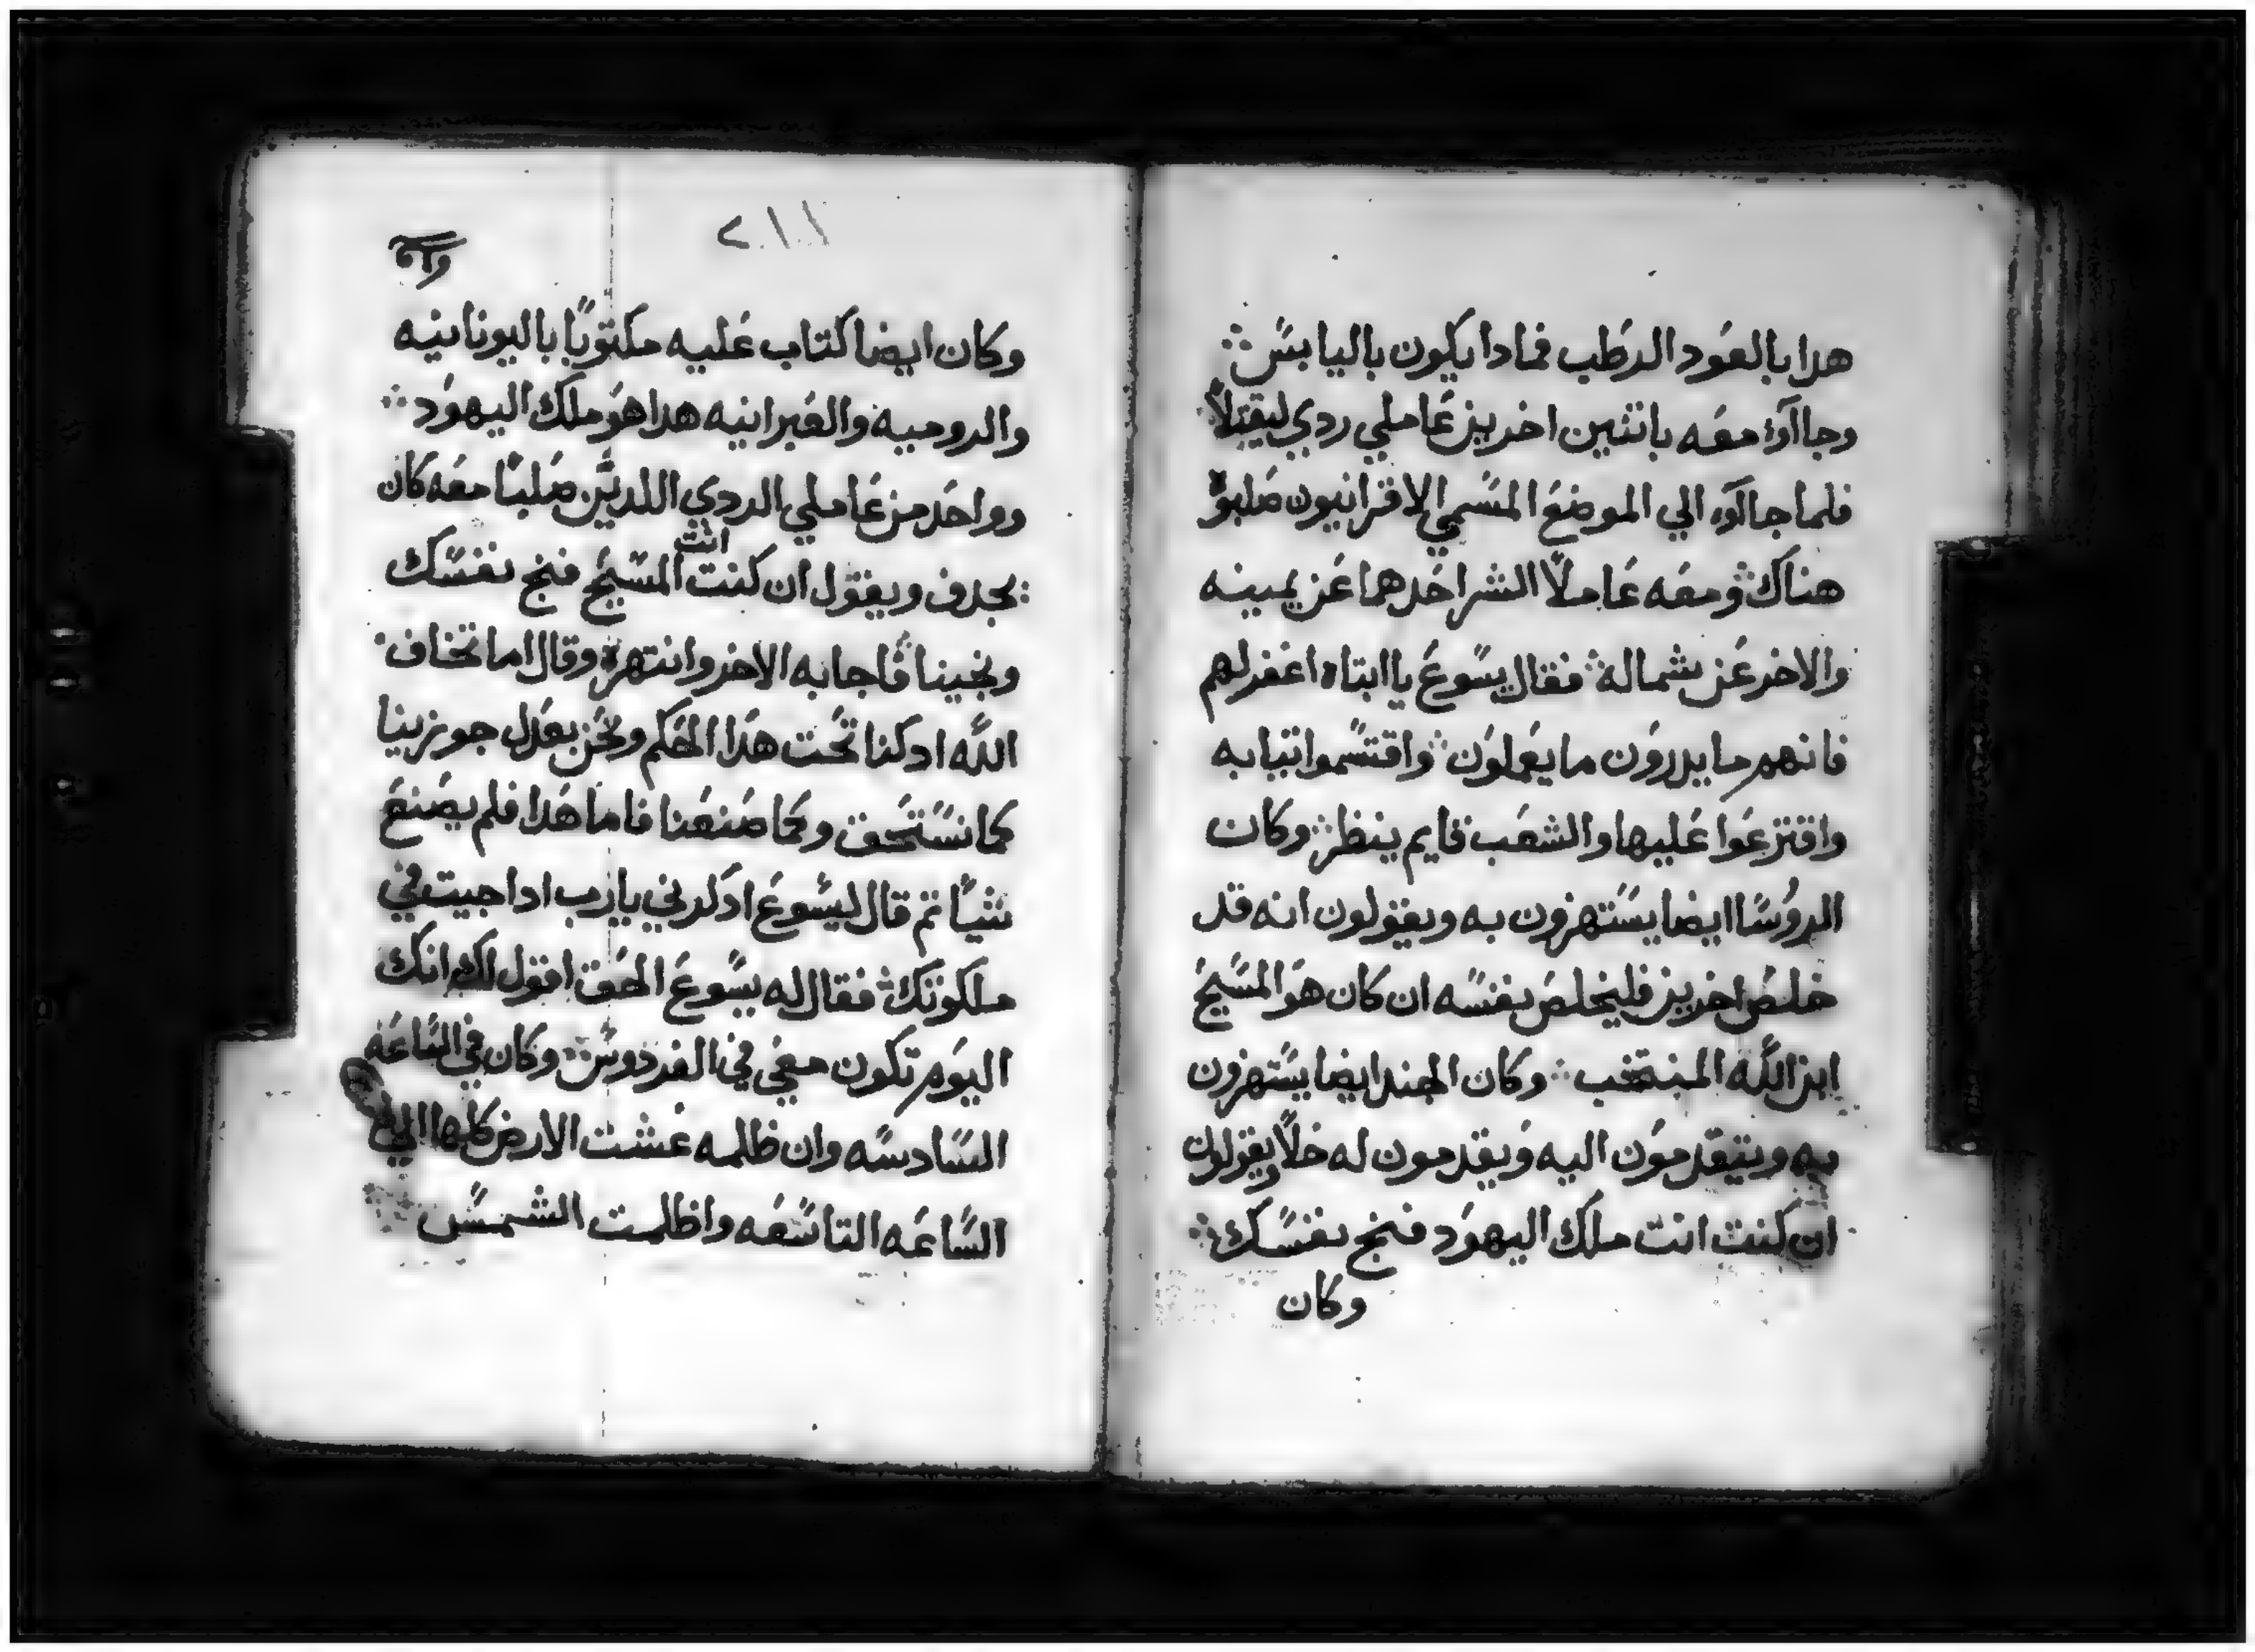 هدا بالعود الرطب فمادا يكون باليابس
وجاآوا معه باثنين اخرين عاملي ردي ليقتلا
فلما جاآو الي الموضع المسمي الاقرانيون صلبوه
هناك ومعه عاملا الشر احدهما عن يمينه
والاخر عن شماله فقال يسوع يا ابتاه اغفر لهم
فانهم ما يدرون ما يعملون واقتسموا ثيابه
واقترعوا عليها والشعب قايم ينظر وكان
الروسا ايضا يستهزون به ويقولون انه قد
خلص اخرين فليخلص نفسه ان كان هو المسيح
ابن الله المنتخب وكان الجند ايضا يستهزون
به ويتقدمون اليه ويقدمون له خلا ويقولون
ان كنت انت ملك اليهود فنج نفسك
وكان
٢١١
وكان ايضا كتاب عليه مكتوبا باليونانيه
والروميه والعبرانيه هدا هو ملك اليهود
وواحد من عاملي الردي اللدين صلبا معه كان
يجدف ويقول ان كنت انت المسيح فنج نفسك
ونجينا فاجابه الاخر وانتهره وقال اما تخاف
الله ادكنا تحت هدا الحكم ونحن بعدل جوزينا
كما نستحق وكما صنعنا فاما هدا فلم يصنع
شيا ثم قال ليسوع ادكرني يارب ادا جيت في
ملكوتك فقال له يسوع الحق اقول لك انك
اليوم تكون معي في الفردوس وكان في الساعه
السادسه وان ظلمه غشت الارض كلها الي
الساعه التاسعه واظلمت الشمس